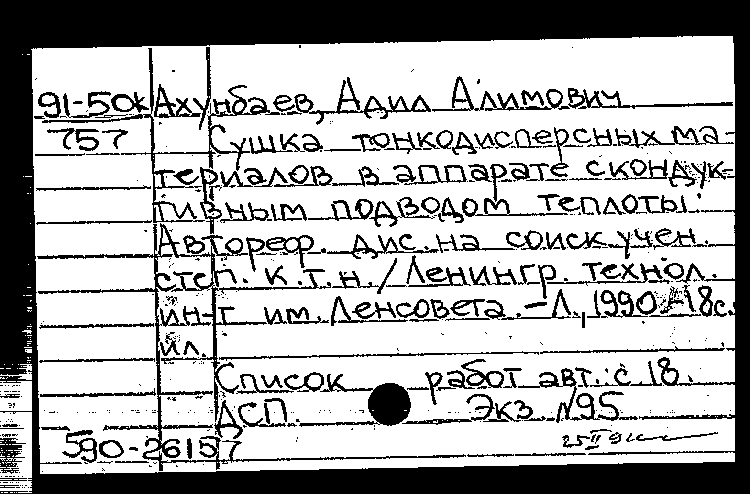 91-50к Ахунбаев, Адил Алимович
757 Сушка тонкодисперсных ма-
териалов в аппарате с кондук-
тивным подводом теплоты:
Автореф. дис. на соиск. учен.
степ. к.т.н. / Ленингр. технол.
ин-т им. Ленсовета. – Л., 1990. – 18с.:
ил.
Список работ авт.: с. 18.
ДСП. Экз №95
590-26157 25 II 91